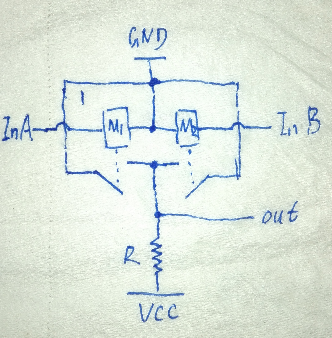 GND
InA M1 M2 In B
out
R
VCC